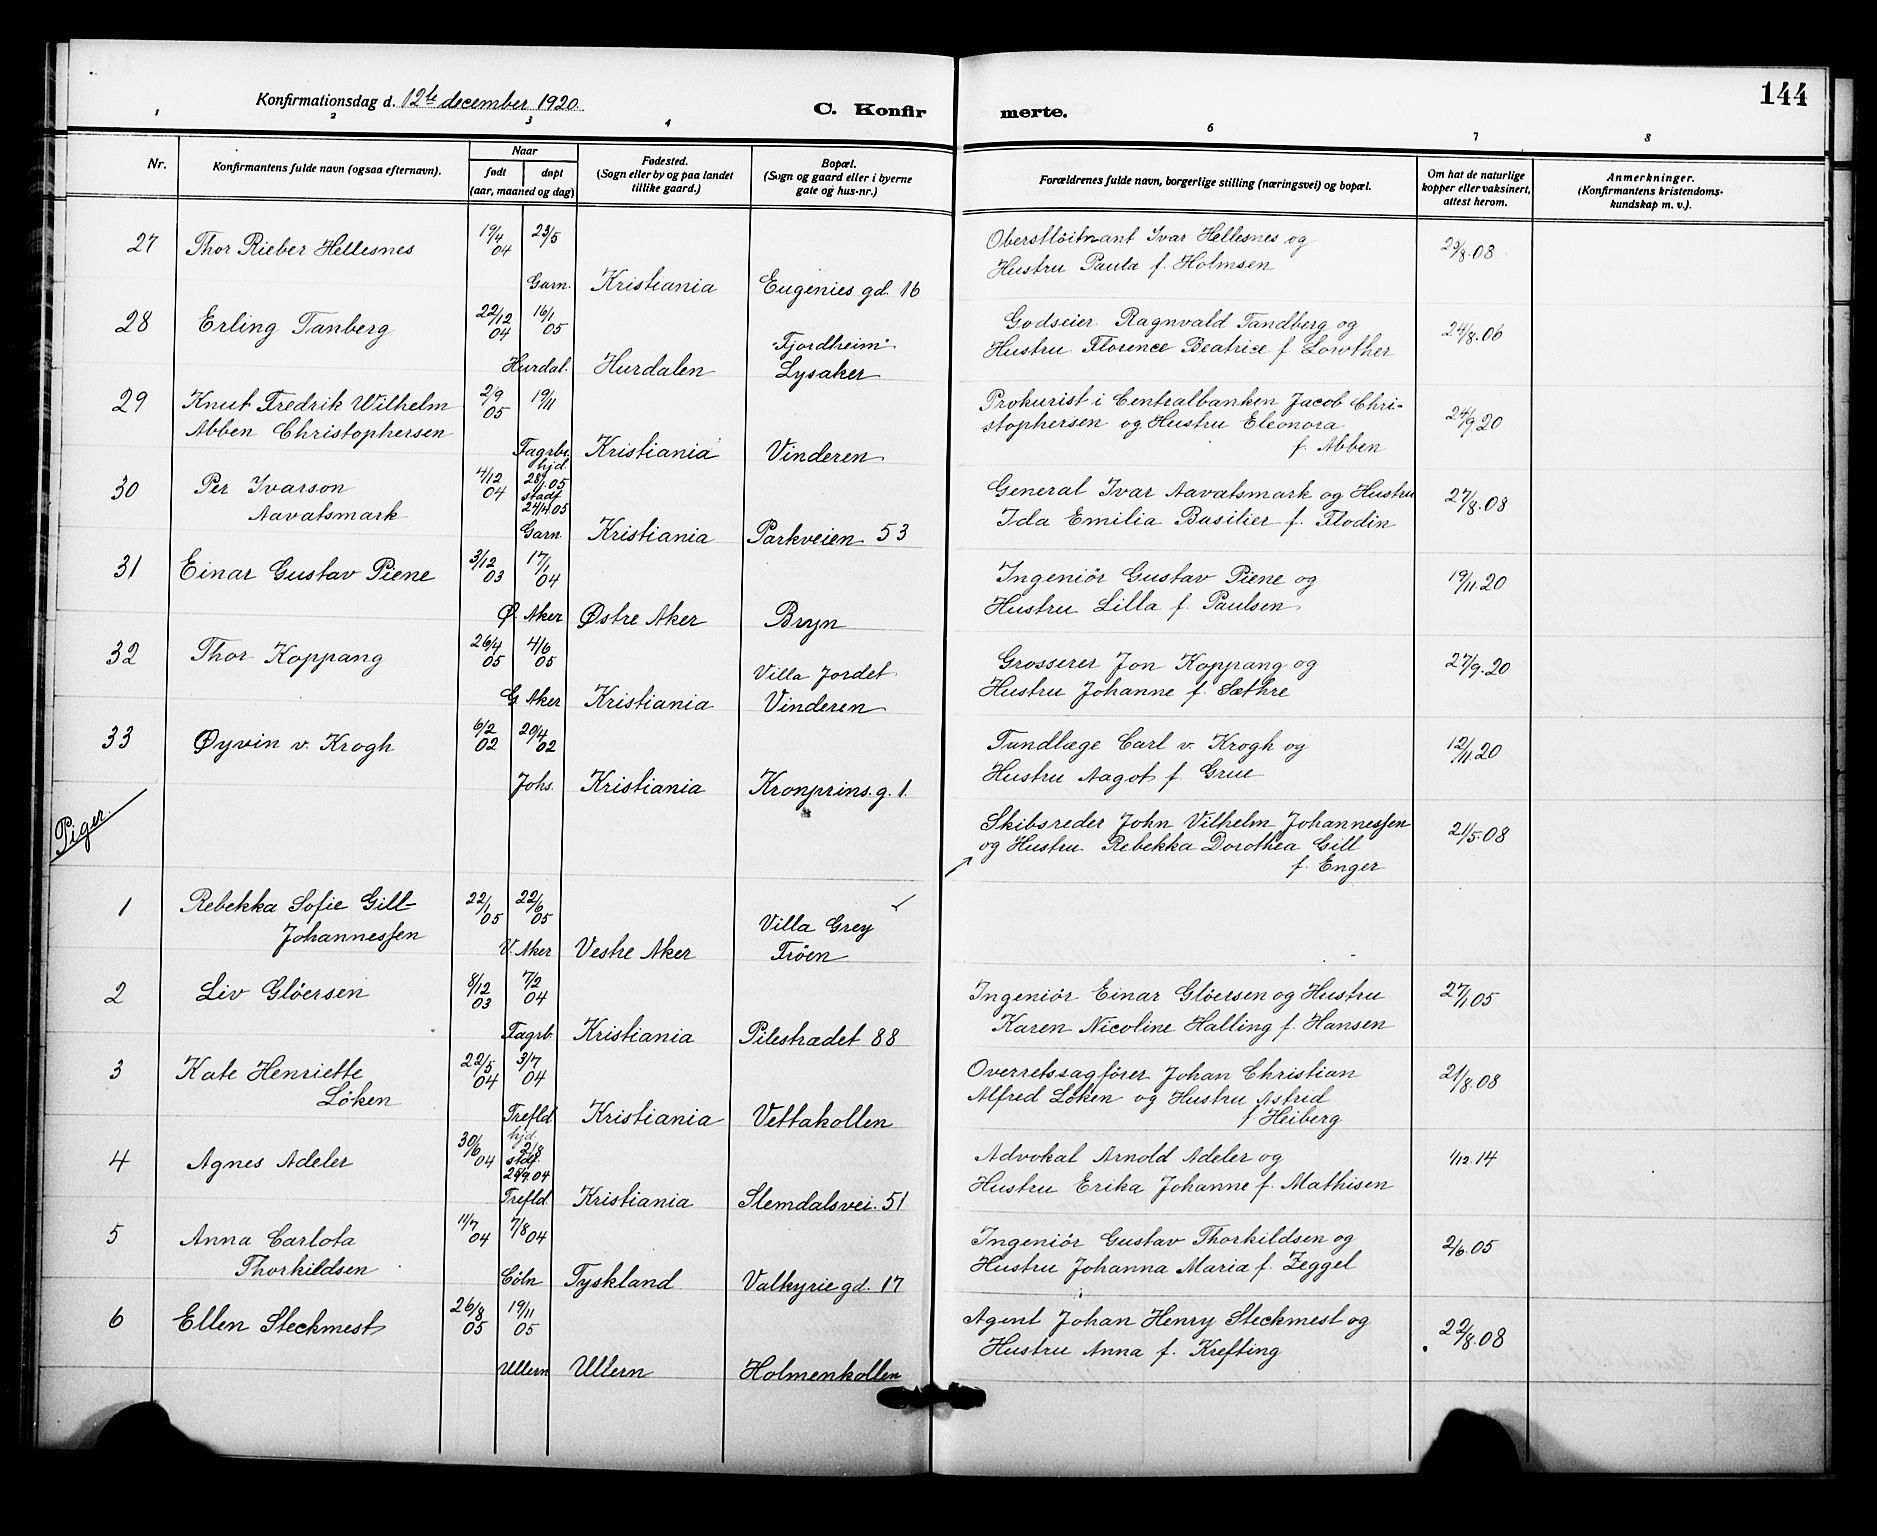 144
Konfirmationsdag d. 12te december 1920.
C. Konfirmerte.
1 2 3 4 6 7 8
Nr. Konfirmantens fulde navn (ogsaa efternavn).
Naar
født døpt
(aar, maaned og dag)
Fødested.
(Sogn eller by og paa landet
tillike gaard.)
Bopæl.
(Sogn og gaard eller i byerne
gate og hus-nr.)
Forældrenes fulde navn, borgerlige stilling (næringsvei) og bopæl.
Om hat de naturlige
kopper eller vaksinert,
attest herom.
Anmerkninger.
(Konfirmantens kristendoms-
kundskap m. v.).
27 Thor Rieber Hellesnes 19/4 04 23/5
Garn. Kristiania Eugenies gd. 16
Oberstlöitnant Ivar Hellesnes og
Hustru Paula f. Holmsen
23/8.08
28 Erling Tanberg 22/12 04 16/1 05
Hurdal. Hurdalen
Fjordheim
Lysaker
Godseier Ragnvald Tandberg og
Hustru Florence Beatrice f. Lowther
24/8.06
29 Knut Fredrik Wilhelm
Abben Christophersen
2/9 05 19/11
Fagrb. Kristiania Vinderen
Prokurist i Centralbanken Jacob Chri-
stophersen og Hustru Eleonora
f. Abben
24/9.20
30 Per Ivarson
Aavatsmark
4/12 04
hjd.
28/1.05
stadf.
24/4.05
Garn. Kristiania Parkveien 53
General Ivar Aavatsmark og Hustru
Ida Emilia Basilier f. Flodin
27/8.08
31 Einar Gustav Piene 3/12 03 17/1 04
Ø. Aker Østre Aker Bryn
Ingeniör Gustav Piene og
Hustru Lilla f. Paulsen
19/11.20
32 Thor Koppang 26/4 05 4/6 05
G. Aker Kristiania
Villa Jordet
Vinderen
Grosserer Jon Koppang og
Hustru Johanne f. Sæthre
27/9.20
33 Øyvin v. Krogh 6/2 02 20/4 02
Johs. Kristiania Kronprins.g. 1.
Tandlæge Carl v. Krogh og
Hustru Aagot f. Grue
12/11.20
Piger.
Skibsreder John Vilhelm Johannessen
og Hustru Rebekka Dorothea Gill
f. Enger
21/5.08
1 Rebekka Sofie Gill-
Johannessen
22/1 05 22/6 05
V. Aker Vestre Aker
Villa Grey
Fröen
2 Liv Glöersen 8/12 03 7/2 04
Fagrb. Kristiania Pilestrædet 88
Ingeniör Einar Glöersen og Hustru
Karen Nicoline Halling f. Hansen
27/1.05
3 Kate Henriette
Löken
22/5 04 3/7 04
Trefld. Kristiania Vettakollen
Overretssagfører Johan Christian
Alfred Löken og Hustru Astrid
f. Heiberg
21/8.08
4 Agnes Adeler 30/6 04
hjd.
2/8
stdf.
25/9.04
Trefld. Kristiania Slemdalsvei. 51
Advokat Arnold Adeler og
Hustru Erika Johanne f. Mathisen
1/12.14
5 Anna Carlota
Thorkildsen
11/7 04 7/8 04
Cöln Tyskland Valkyriegd. 17
Ingeniör Gustav Thorkildsen og
Hustru Johanna Maria f. Zeggel
2/6.05
6 Ellen Steckmest 26/8 05 19/11 05
Ullern Ullern Holmenkollen
Agent Johan Henry Steckmest og
Hustru Anna f. Krefting
22/8.08